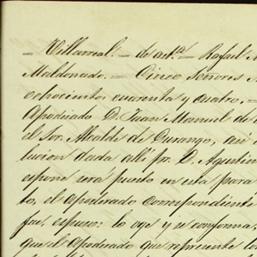 — Villarreal. — de acta — Rafael M
Maldonado. — Cinco Señores M
ochocientos cuarenta y cuatro, —
Apoderado D. Juan Manuel de
el Sor. Alcalde de Durango, así
lucion dada alli pr. D. Agustin
espone sea puesto en esta para
to, el apoderado correspondiente
fue, espuso: lo oye y se conforma,
que el Apoderado que represente los